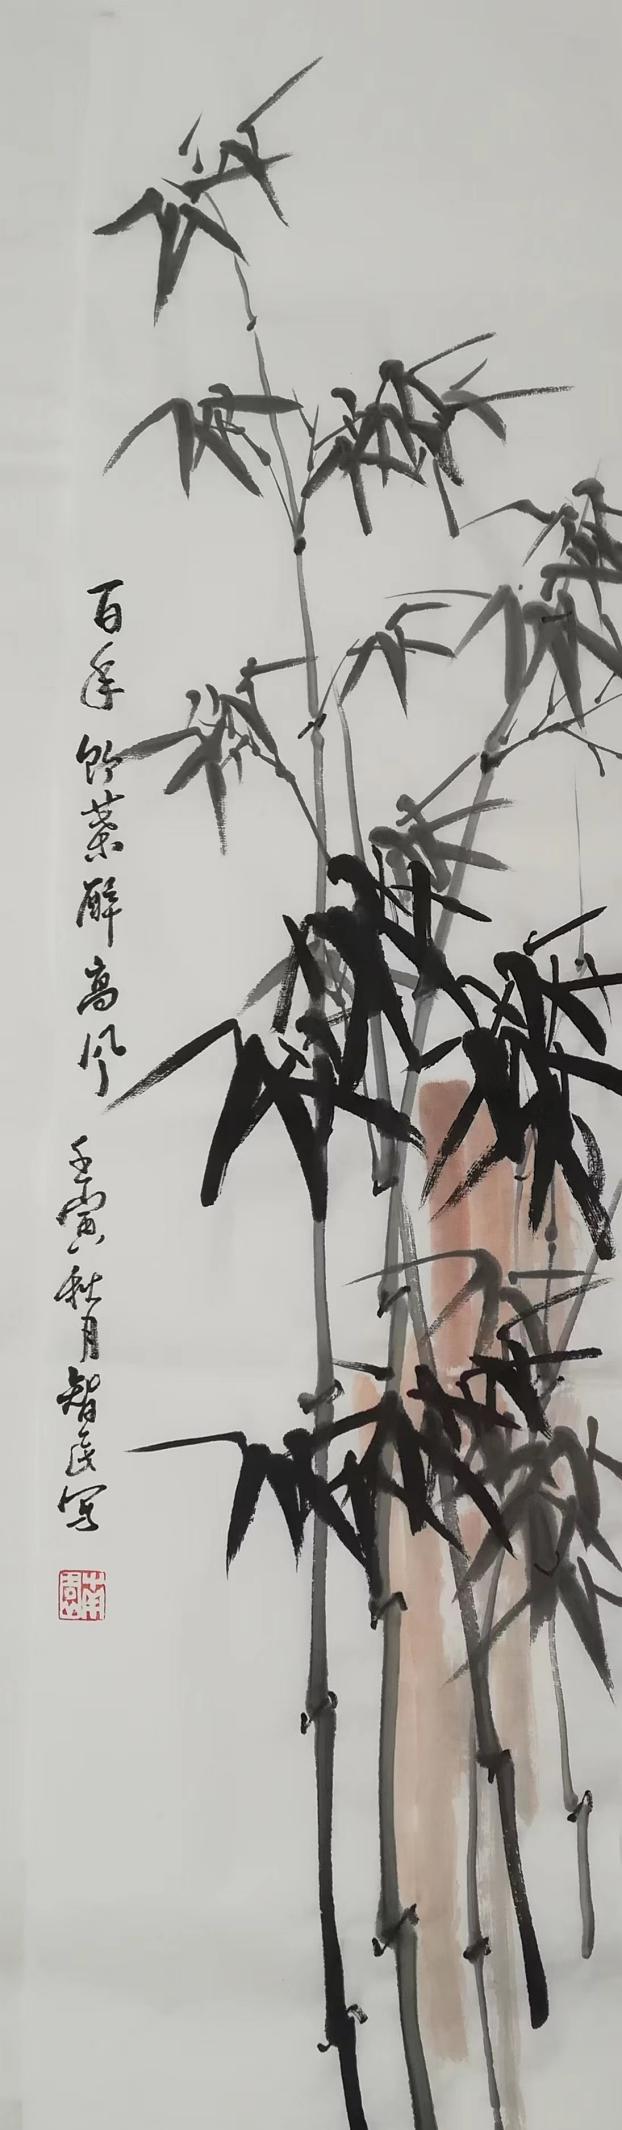 百年节叶醉高风
壬寅秋月智民写